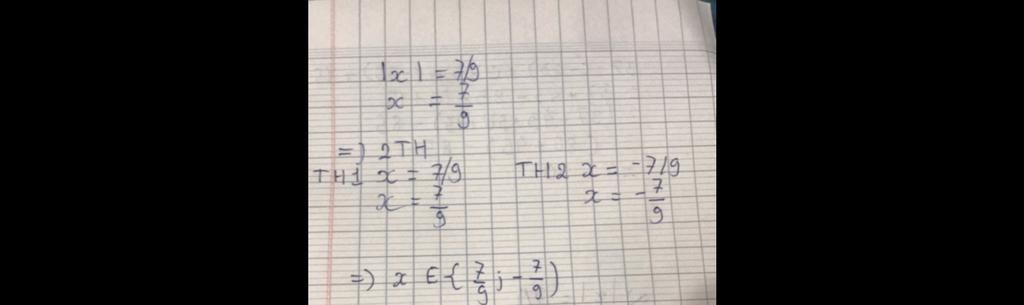 |x| = 7/9
x = 7/9
=) 2TH
TH1 x = 7/9 TH2 x = -7/9
x = 7/9 x = -7/9
=) x ∈ { 7/9 ; -7/9 )